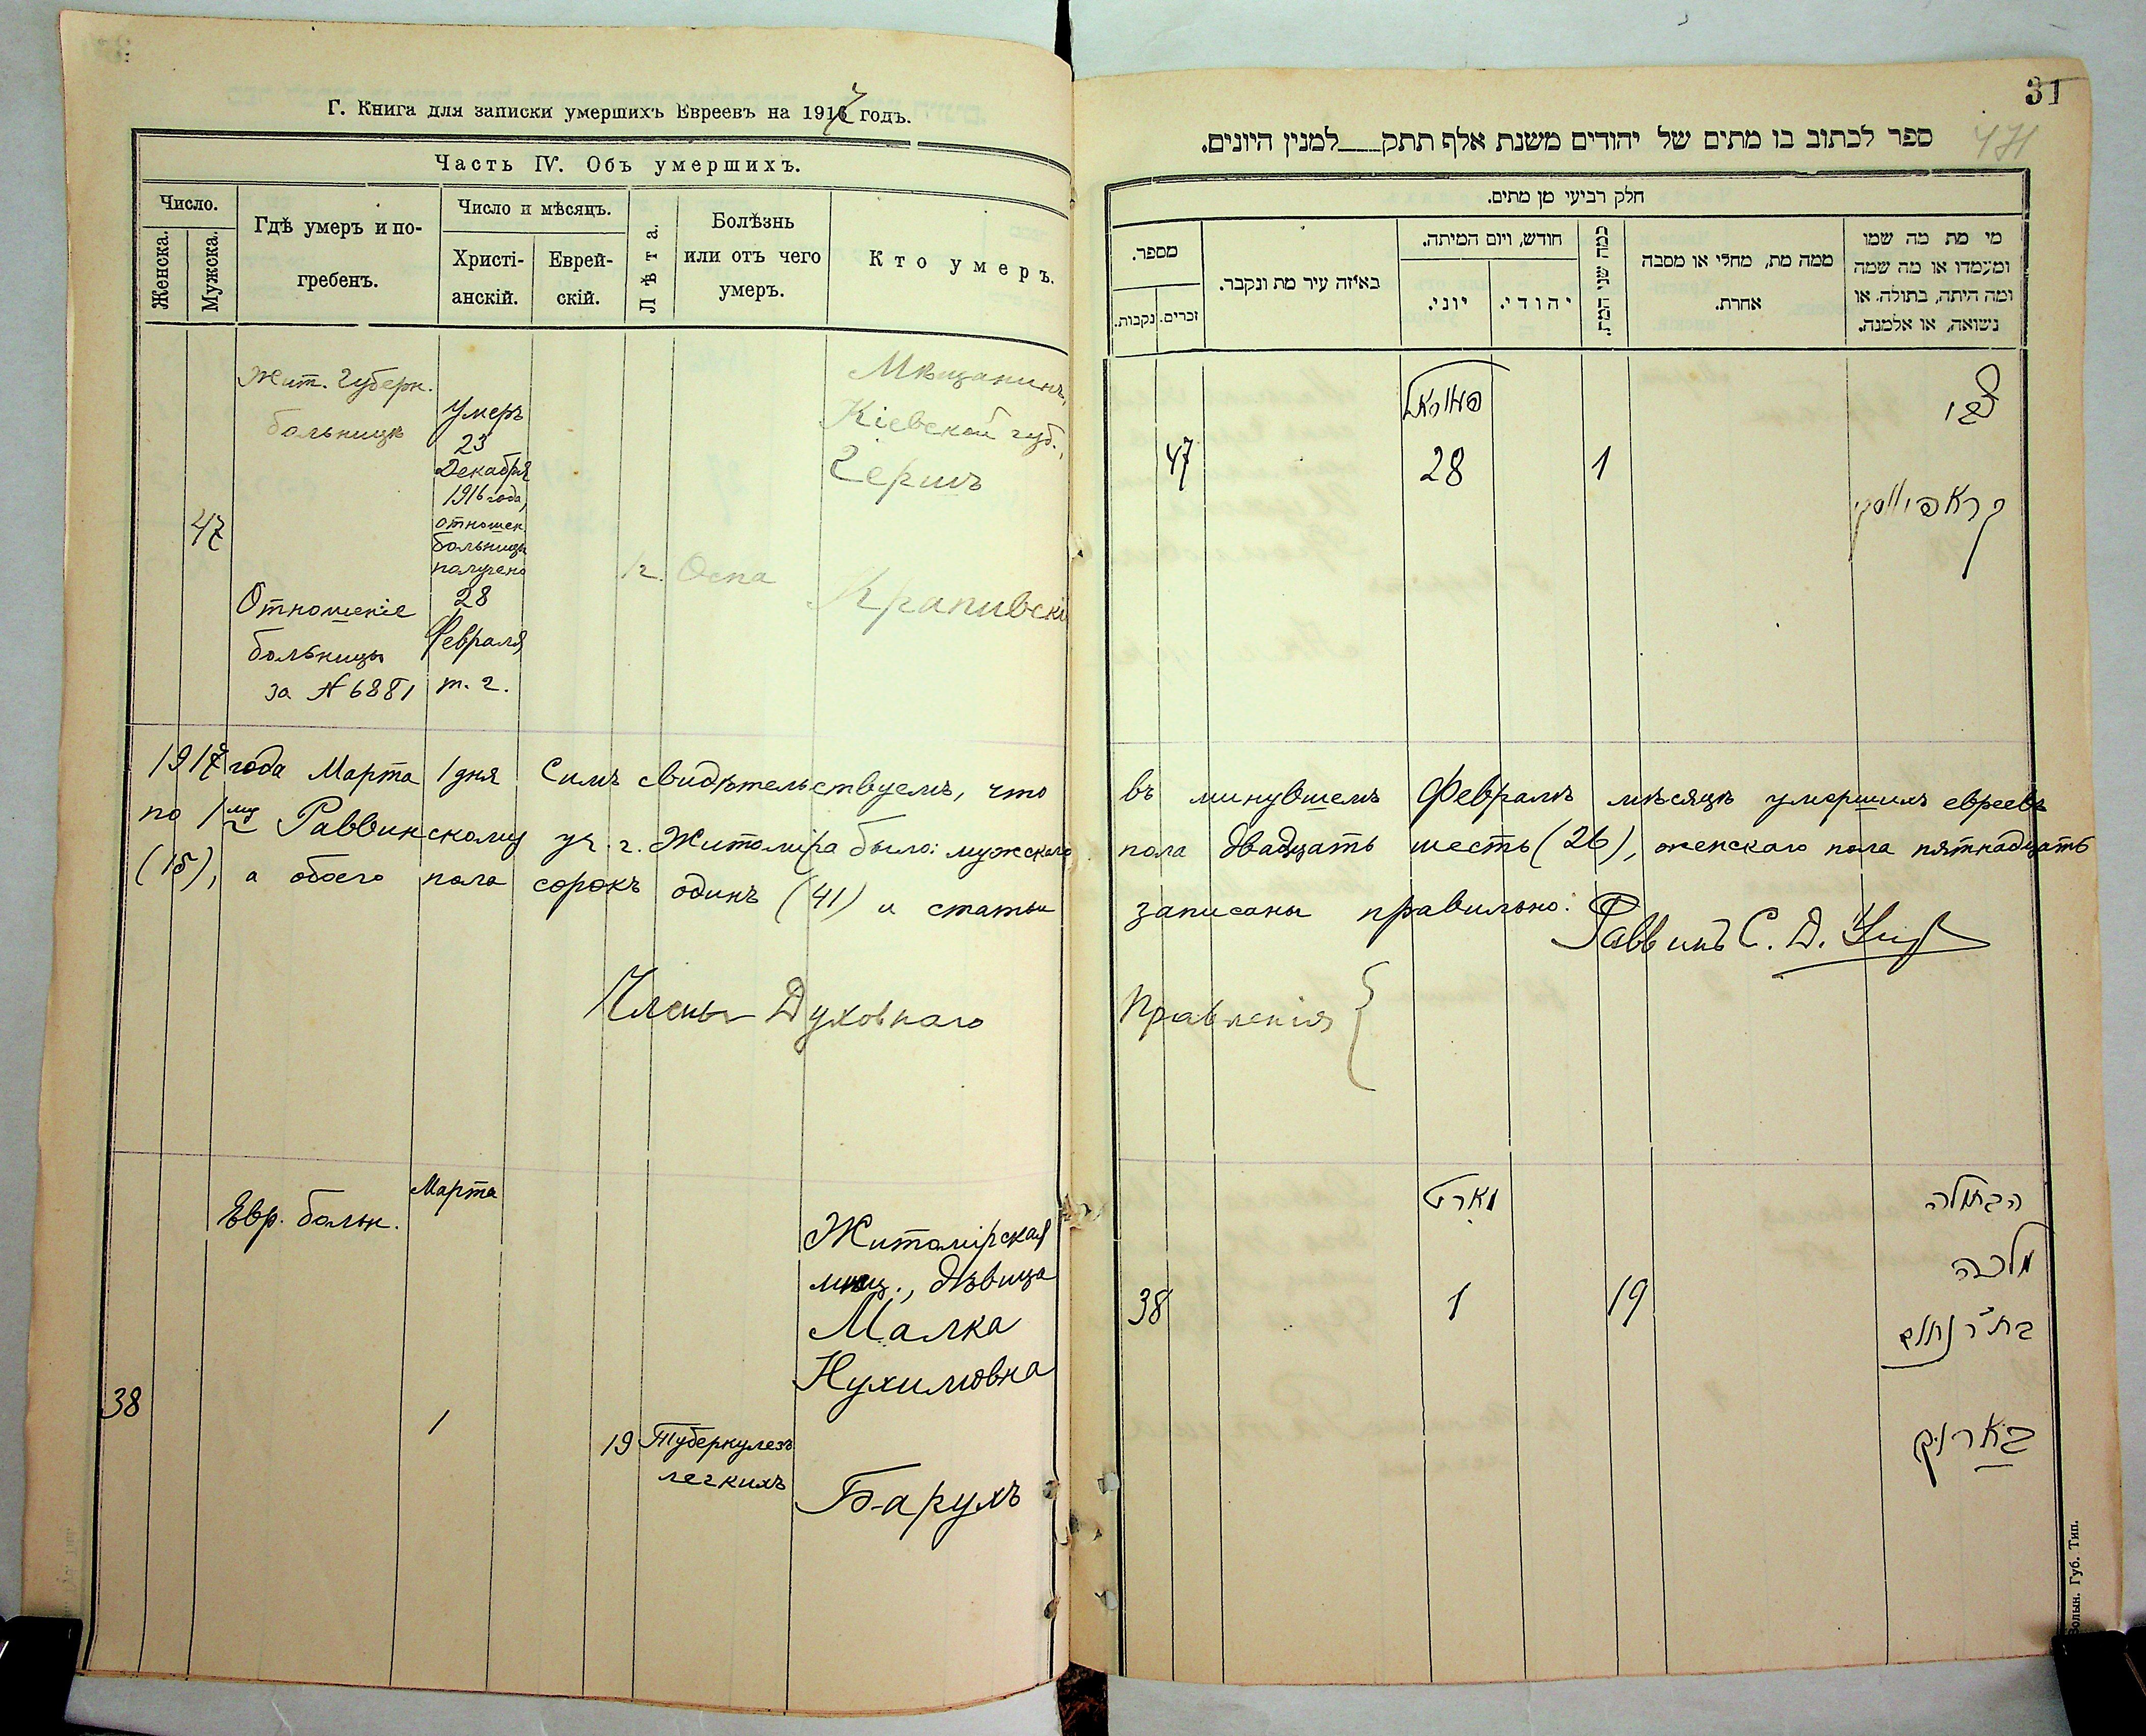 Г. Книга для записки умершихъ Евреевъ на 1917 годъ.
Часть IV. Объ умершихъ.
Число.
Женска.
Мужска.
Гдѣ умеръ и по-
гребенъ.
Число и мѣсяцъ.
Христі-
анскій.
Еврей-
скій.
Лѣта.
Болѣзнь
или отъ чего
умеръ.
Кто умеръ.
47
Жит. Губерн.
больницѣ
Отношеніе
больницы
за № 6881
Умеръ
23
Декабря
1916 года,
отношен.
больницы
получено
28
Февраля
т. г.
1 г.
Оспа
Мѣщанинъ,
Кіевской губ.,
Гершъ
Крапивскі
1917 года Марта 1 дня Симъ свидѣтельствуемъ, что
по 1му Раввинскому уч. г. Житоміра было: мужскаго
(15), а обоего пола сорокъ одинъ (41) и статьи
Члены Духовнаго
38
Евр. больн.
Марта
1
19
Туберкулезъ
легкихъ
Житомірская
мѣщ., дѣвица
Малка
Нухимовна
Барухъ
31
471
ספר לכתוב בו מתים של יהודים משנת אלף תתק___למנין היונים.
חלק רביעי מן מתים.
מספר.
נקבות.
זכרים.
באיזה עיר מת ונקבר.
חודש, ויום המיתה.
יוני.
יהודי.
כמה שני המת.
ממה מת, מחלי או מסבה
אחרת.
מי מת מה שמו
ומעמדו או מה שמה
ומה היתה, בתולה, או
נשואה, או אלמנה.
47
28
1
צבי
קראפיווסקי
въ минувшемъ Февралѣ мѣсяцѣ умершихъ евреевъ
пола двадцать шесть (26), женскаго пола пятнадцать
записаны правильно:
Раввинъ С. Д.
Правленія
38
מארט
1
19
הבתולה
מלכה
בת ר' נחום
בארוק
Волын. Губ. Тип.